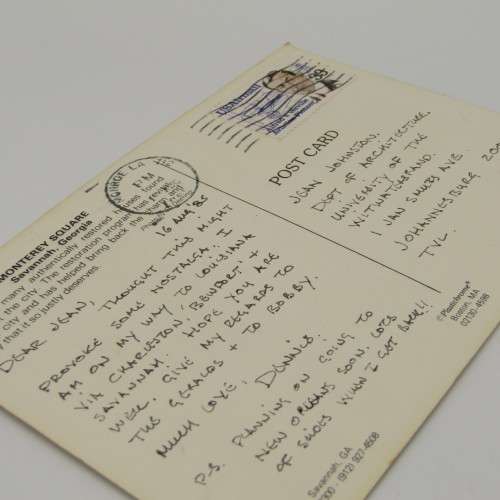 MONTEREY SQUARE
Savannah, Georgia
many authentically restored houses found
in the city. The restoration program has revived
city and has helped bring back the
that it so justly deserves.
16 AUG '85
DEAR JEAN,
THOUGHT THIS MIGHT
PROVOKE SOME NOSTALGIA. I
AM ON MY WAY TO LOUISIANA
VIA CHARLESTON, BEWFORT +
SAVANNAH. HOPE YOU ARE
WELL. GIVE MY REGARDS TO
THE GERALDS + TO BOBBY.
MUCH LOVE, DENNIS.
P.S. PLANNING ON GOING TO
NEW ORLEANS SOON. LOTS
OF SLIDES WHEN I GET BACK!!
POST CARD
JEAN JOHNSTON,
DEPT OF ARCHITECTURE,
UNIVERSITY OF THE
WITWATERSRAND,
1 JAN SMUTS AVE.
JOHANNESBURG
TVL.
©Plastichrome®
Boston, MA
02130-4598
Savannah, GA
(912) 927-4508